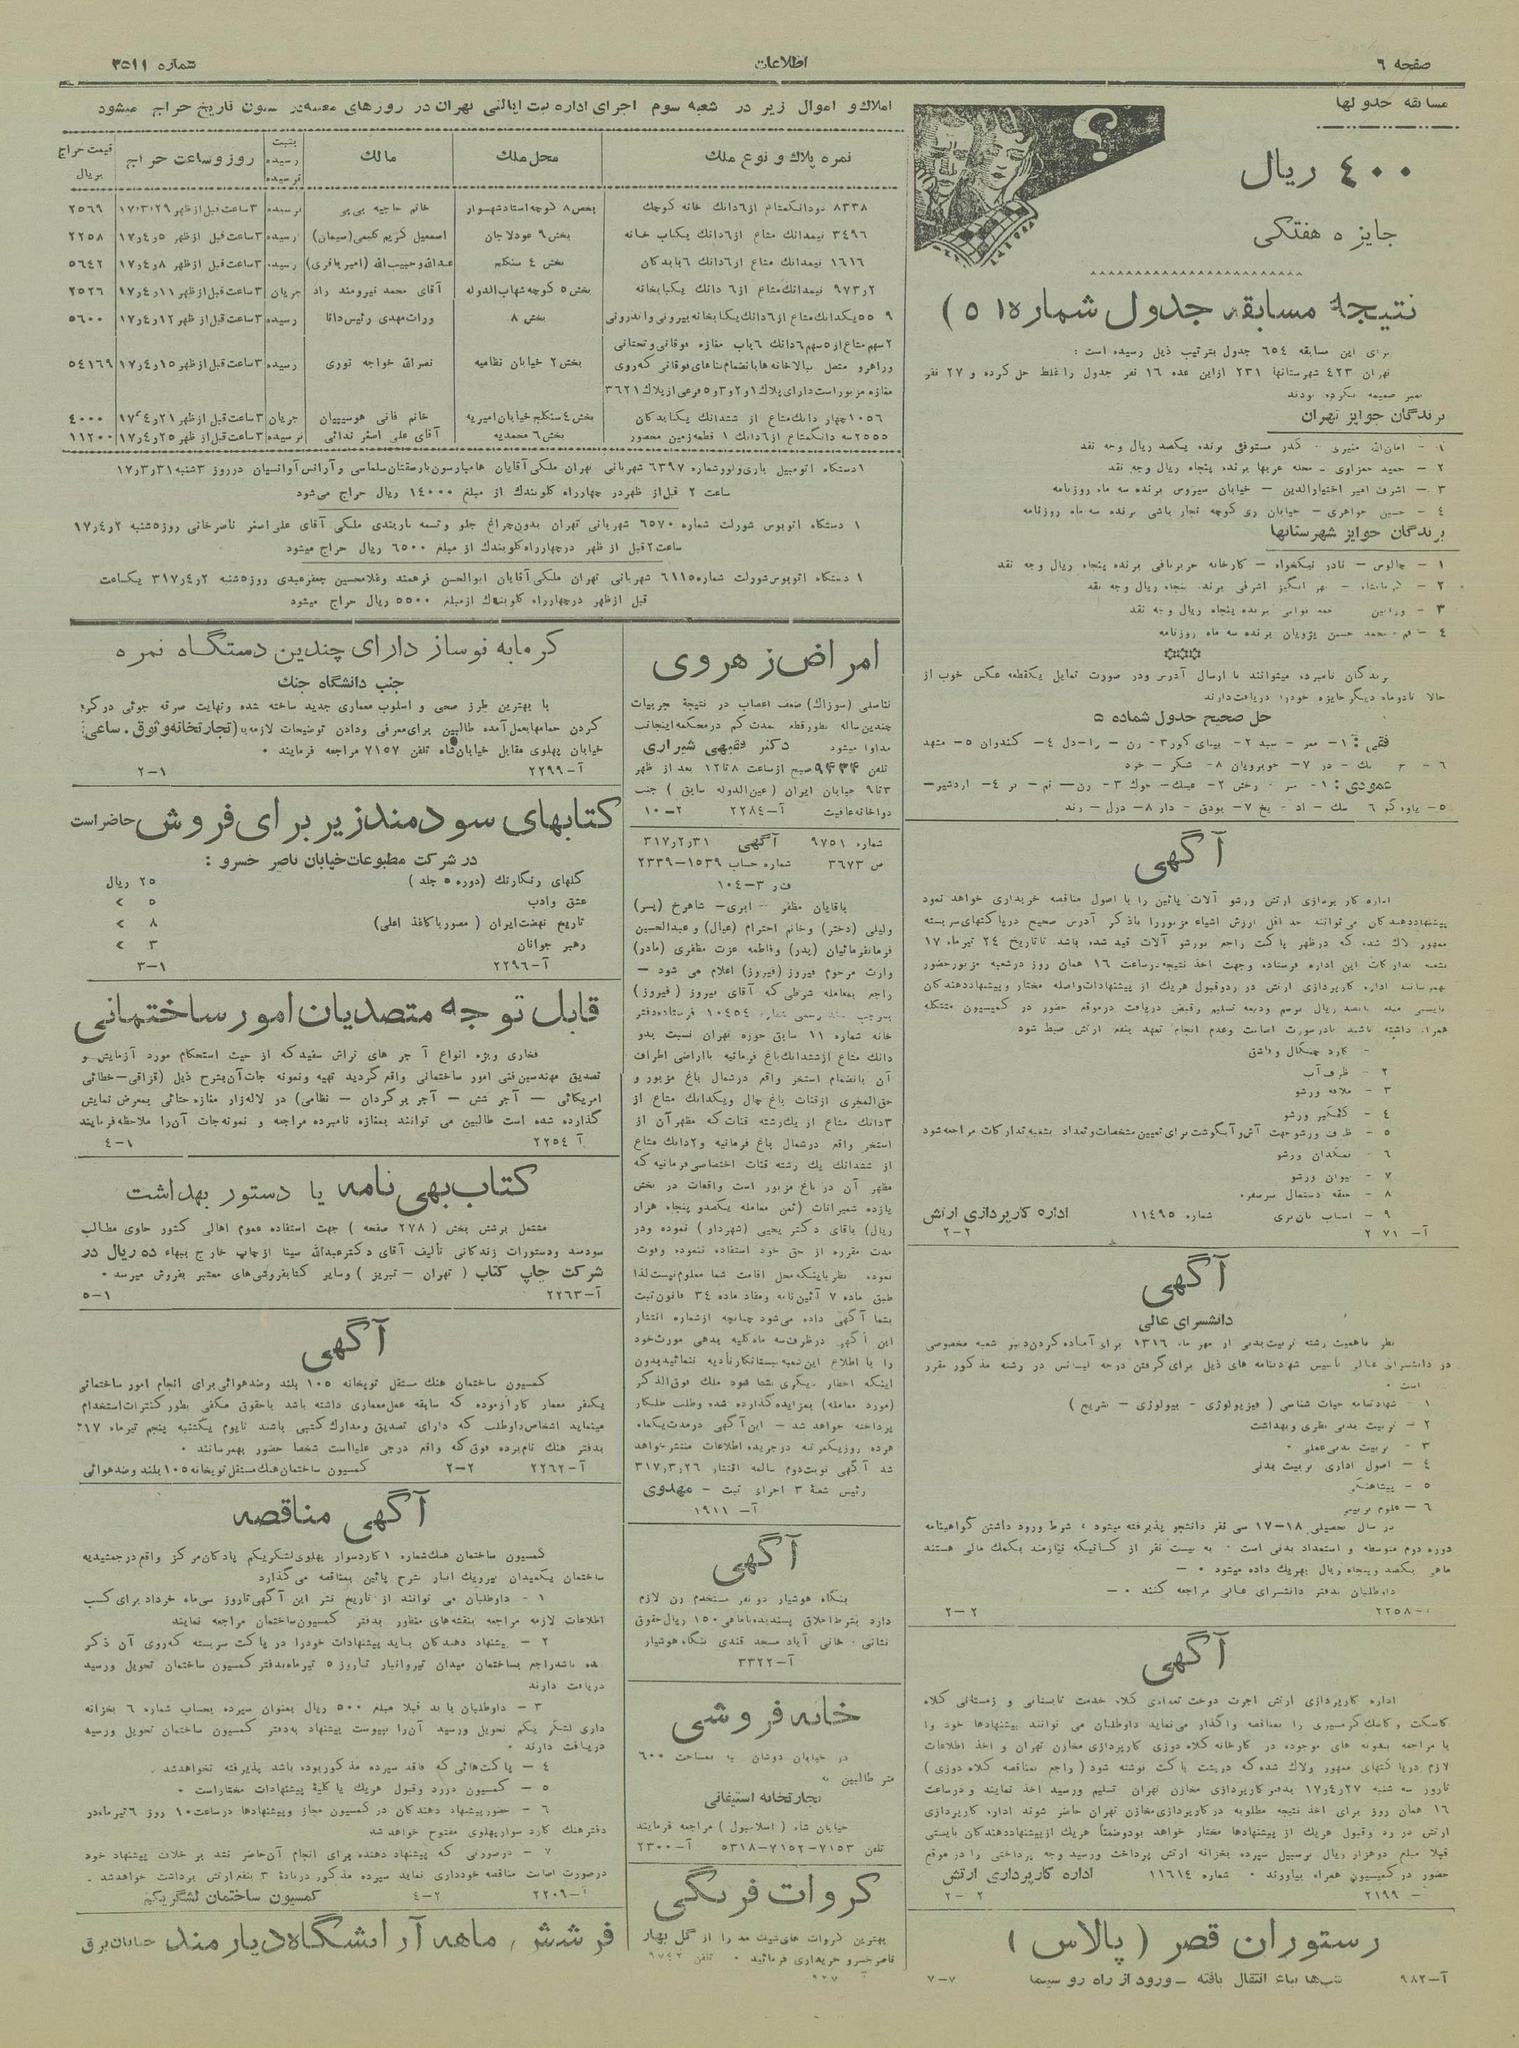 صفحه ۶
اطلاعات
شماره ۳۵۱۱
مسابقه جدولها
۴۰۰ ریال
جایزه هفتگی
نتیجهٔ مسابقه جدول شماره (۵۱
برای این مسابقه ۶۵۴ جدول بترتیب ذیل رسیده است :
تهران ۴۲۳ شهرستانها ۲۳۱ از این عده ۱۶ نفر جدول را غلط حل کرده و ۲۷ نفر
تمبر ضمیمه نکرده بودند
برندگان جوایز تهران
۱ - امان‌الله منیری - گذر مستوفی برنده یکصد ریال وجه نقد
۲ - حمید حمزاوی - محله عربها برنده پنجاه ریال وجه نقد
۳ - اشرف امیر اختیارالدین - خیابان سیروس برنده سه ماه روزنامه
۴ - حسین جواهری - خیابان ری کوچه تجار باشی برنده سه ماه روزنامه
برندگان جوایز شهرستانها
۱ - چالوس - نادر نیکخواه - کارخانه حریربافی برنده پنجاه ریال وجه نقد
۲ - کرمانشاه - مهر انگیز اشرفی برنده پنجاه ریال وجه نقد
۳ - ورامین برنده پنجاه ریال وجه نقد
۴ - قم - محمد حسن پژویان برنده سه ماه روزنامه
برندگان نامبرده میتوانند با ارسال آدرس و در صورت تمایل یکقطعه عکس خوب از
حالا تا دو ماه دیگر جایزه خود را دریافت دارند
حل صحیح جدول شماده ۵
۲- بینای کور ۳- رن - را - دل ۴- کندوان ۵- مشهد
در ۷- خوبرویان ۸- شکر - خرد
عمودی : ۱-
۷- بودق - دار ۸- درل - رند
آگهی
اداره کارپردازی ارتش ورشو آلات پائین را با اصول مناقصه خریداری خواهد نمود
پیشنهاددهندگان می‌توانند حداقل ارزش اشیاء مزبور را با ذکر آدرس صحیح در پاکتهای سر بسته
ممهور لاک شده که در ظهر پاکت راجع بورشو آلات قید شده باشد تا تاریخ ۲۴ تیر ماه ۱۷
بشعبه تدارکات این اداره فرستاده وجهت اخذ نتیجه در ساعت ۱۶ همان روز در شعبه مزبور حضور
بهمرسانند اداره کارپردازی ارتش در رد و قبول هریک از پیشنهادات واصله مختار و پیشنهاددهندگان
بایستی مبلغ پانصد ریال برسم ودیعه تسلیم و قبض دریافت در موقع حضور در کمیسیون متشکله
همراه داشته باشند تا در صورت اصابت وعدم انجام تعهد بنفع ارتش ضبط شود
- کارد چنگال و قاشق
۲ - ظرف آب
۳ - ملاقه ورشو
۴ - کفگیر ورشو
۵ - ظرف ورشو جهت آش و آبگوشت برای تعیین مشخصات و تعداد بشعبه تدارکات مراجعه شود
۶ - نمکدان ورشو
۷ - لیوان ورشو
۸ - حلقه دستمال سرسفره
۹ - اسباب نان‌بری شماره ۱۱۴۹۵ اداره کارپردازی ارتش
آ- ۲۱۷۱ ۲-۲
آگهی
دانشسرای عالی
نظر باهمیت رشته تربیت بدنی از مهر ماه ۱۳۱۶ برای آماده کردن دبیر شعبه مخصوصی
در دانشسرای عالی تاسیس شهادتنامه های ذیل برای گرفتن درجه لیسانس در رشته مذکور مقرر
است
۱ - شهادتنامه حیات شناسی ( فیزیولوژی - بیولوژی - تشریح )
۲ - تربیت بدنی نظری و بهداشت
۳ - تربیت بدنی عملی
۴ - اصول اداری تربیت بدنی
۵ - پیشاهنگی
۶ - علوم تربیتی
در سال تحصیلی ۱۸-۱۷ سی نفر دانشجو پذیرفته میشود ، شرط ورود داشتن گواهینامه
دوره دوم متوسطه و استعداد بدنی است . به بیست نفر از کسانیکه نیازمند بکمک مالی هستند
ماهی یکصد و پنجاه ریال بهریک داده میشود . -
داوطلبان بدفتر دانشسرای عالی مراجعه کنند . -
۲۲۵۸ ۲-۲
آگهی
اداره کارپردازی ارتش اجرت دوخت تعدادی کلاه خدمت تابستانی و زمستانی کلاه
کاسکت و کاسک گرمسیری را بمناقصه واگذار می‌نماید داوطلبان می توانند پیشنهادها خود را
با مراجعه بنمونه های موجوده در کارخانه کلاه دوزی کارپردازی مخازن تهران و اخذ اطلاعات
لازم در پاکتهای ممهور ولاک شده که در پشت پاکت نوشته شود ( راجع بمناقصه کلاه دوزی )
تا روز سه شنبه ۲۷ر۴ر۱۷ بدفتر کارپردازی مخازن تهران تسلیم ورسید اخذ نمایند و در ساعت
۱۶ همان روز برای اخذ نتیجه مطلوبه در کارپردازی مخازن تهران حاضر شوند اداره کارپردازی
ارتش در رد وقبول هریک از پیشنهادها مختار خواهد بود و ضمناً هریک از پیشنهاددهندگان بایستی
قبلا مبلغ دوهزار ریال برسبیل سپرده بخزانه ارتش پرداخت ورسید وجه پرداختی را در موقع
حضور در کمیسیون همراه بیاورند . شماره ۱۱۶۱۴ اداره کارپردازی ارتش
۲۱۹۹ ۲-۲
رستوران قصر ( پالاس )
آ-۹۸۲ شبها بباغ انتقال یافته - ورود از راه رو سینما ۷-۷
املاک و اموال زیر در شعبه سوم اجرای اداره ثبت ایالتی تهران در روزهای معینه در ستون تاریخ حراج میشود
نمره پلاک و نوع ملک | محل ملک | مالک | بثبت رسیده نرسیده | روز و ساعت حراج | قیمت حراج بریال
۸۳۳۸ دودانگ مشاع از ۶ دانگ خانه کوچک | بخش ۸ کوچه استاد شهسوار | خانم حاجیه بی بی | نرسیده | ۳ ساعت قبل از ظهر ۲۹ر۳ر۱۷ | ۲۵۶۹
۳۴۹۶ نیمدانگ مشاع از ۶ دانگ یکباب خانه | بخش ۹ عودلاجان | اسمعیل کریم کلیمی (سیمان) | رسیده | ۳ ساعت قبل از ظهر ۵ر۴ر۱۷ | ۲۲۵۸
۱۶۱۶ نیمدانگ مشاع از ۶ دانگ ۶ باب دکان | بخش ۴ سنگلج | عبدالله و حبیب الله (امیر باقری) | رسیده | ۳ ساعت قبل از ظهر ۸ر۴ر۱۷ | ۵۶۴۲
۲ر۹۷۳ نیمدانگ مشاع از ۶ دانگ یکبابخانه | بخش ۵ کوچه شهاب الدوله | آقای محمد نیرومند راد | جریان | ۳ ساعت قبل از ظهر ۱۱ر۴ر۱۷ | ۲۵۲۶
۵۵۹ یکدانگ مشاع از ۶ دانگ یکبابخانه بیرونی و اندرونی | بخش ۸ | وراث مهدی رئیس دانا | رسیده | ۳ ساعت قبل از ظهر ۱۲ر۴ر۱۷ | ۵۶۰۰
۲ سهم مشاع از ۵ سهم ۶ دانگ ۶ باب مغازه فوقانی و تحتانی
وراهرو متصل ببالاخانه ها بانضمام بناهای فوقانی که روی | بخش ۲ خیابان نظامیه | نصرالله خواجه نوری | رسیده | ۳ ساعت قبل از ظهر ۱۵ر۴ر۱۷ | ۵۴۱۶۹
مغازه مزبور است دارای پلاک ۱و۲و۳و۵ فرعی از پلاک ۳۶۲۱
۱۰۵۶ چهار دانگ مشاع از ششدانگ یکبابدکان | بخش ۴ سنگلج خیابان امیریه | خانم فانی هوسپیان | جریان | ۳ ساعت قبل از ظهر ۲۱ر۴ر۱۷ | ۴۰۰۰
۲۵۵۵ سه دانگ مشاع از ۶ دانگ ۱ قطعه زمین محصور | بخش ۶ محمدیه | آقای علی اصغر ندائی | نرسیده | ۳ ساعت قبل از ظهر ۲۵ر۴ر۱۷ | ۱۱۲۰۰
۱ دستگاه اتومبیل باری ولوو شماره ۶۳۹۷ شهربانی تهران ملکی آقایان هامبارسون بارسقتیان سلماسی و آرانس آوانسیان در روز ۳ شنبه ۳۱ر۳ر۱۷
ساعت ۲ قبل از ظهر در چهارراه گلوبندک از مبلغ ۱۴۰۰۰ ریال حراج می‌شود
۱ دستگاه اتوبوس شورلت شماره ۶۵۷۰ شهربانی تهران بدون چراغ جلو و تسمه باربندی ملکی آقای علی اصغر ناصرخانی روز ۵ شنبه ۲ر۴ر۱۷
ساعت ۲ قبل از ظهر در چهارراه گلوبندک از مبلغ ۶۵۰۰ ریال حراج میشود
۱ دستگاه اتوبوس شورلت شماره ۶۱۱۵ شهربانی تهران ملکی آقایان ابوالحسن فرهمند و غلامحسین جعفر عبدی روز ۵ شنبه ۲ر۴ر۳۱۷ یکساعت
قبل از ظهر در چهارراه گلوبندک از مبلغ ۵۵۰۰ ریال حراج میشود
امراض زهروی
تناسلی (سوزاک) ضعف اعصاب در نتیجهٔ تجربیات
چندین ساله بطور قطع بمدت کم در محکمه اینجانب
مداوا میشود دکتر فقیهی شیرازی
تلفن ۹۴۳۴ صبح از ساعت ۸ تا ۱۲ بعد از ظهر
۳ تا ۹ خیابان ایران (عین الدوله سابق) جنب
دواخانه عافیت آ-۲۲۸۴ ۲-۱۰
شماره ۹۷۵۱ آگهی ۳۱ر۲ر۳۱۷
ص ۳۶۷۳ شماره حساب ۱۵۳۹-۲۳۳۹
ف ر ۳-۱۰۴
باقایان مظفر - ایری - شاهرخ (پسر)
ولیلی (دختر) وخانم احترام (عیال) و عبدالحسین
فرمانفرمائیان (پدر) وفاطمه عزت مظفری (مادر)
وارث مرحوم فیروز (فیروز) اعلام می شود -
راجع بمعامله شرطی که آقای فیروز (فیروز)
بموجب سند رسمی شماره ۱۰۴۵۴ فرستاده دفتر
خانه شماره ۱۱ سابق حوزه تهران نسبت بدو
دانگ مشاع از ششدانگ باغ فرمانیه با اراضی اطراف
آن بانضمام استخر واقع در شمال باغ مزبور و
حق‌المجری از قنات باغ چال ویکدانگ مشاع از
۳ دانگ مشاع از یک رشته قنات که مظهر آن از
استخر واقع در شمال باغ فرمانیه و ۲ دانگ مشاع
از ششدانگ یک رشته قنات اختصاصی فرمانیه که
مظهر آن در باغ مزبور است واقعات در بخش
یازده شمیرانات (ثمن معامله یکصد و پنجاه هزار
ریال) باقای دکتر یحیی (شهردار) نموده و در
مدت مقرره از حق خود استفاده ننموده وفوت
نموده نظر باینکه محل اقامت شما معلوم نیست لذا
طبق ماده ۷ آئین نامه ومفاد ماده ۳۴ قانون ثبت
بشما آگهی داده می‌شود چنانچه از شماره انتشار
این آگهی در ظرف سه ماه کلیه بدهی مورث خود
را با اطلاع این شعبه ببستانکار تأدیه ننمائید بدون
اینکه اخطار دیگری بشما شود ملک فوق‌الذکر
(مورد معامله) بمزایده گذارده شده وطلب طلبکار
پرداخته خواهد شد - این آگهی در مدت یکماه
هرده روز یکمرتبه در جریده اطلاعات منتشر خواهد
شد آگهی نوبت دوم سالمه انتشار ۲۶ر۳ر۳۱۷
رئیس شعبهٔ ۳ اجراء ثبت - مهدوی
آ- ۱۹۱۱
آگهی
بنگاه هوشیار دو نفر مستخدم زن لازم
دارد بشرط اخلاق پسندیده با ماهی ۱۵۰ ریال حقوق
نشانی . خانی آباد مسجد قندی بنگاه هوشیار
آ-۳۳۲۲
خانه فروشی
در خیابان دوشان په بمساحت ۶۰۰
متر طالبین به
تجارتخانه استیفائی
خیابان شاه ( اسلامبول ) مراجعه فرمایند
تلفن ۷۱۵۳-۷۱۵۲-۵۳۱۸ آ-۲۳۰۰
کروات فرنگی
بهترین کروات های شیک مد را از گل بهار
ناصر خسرو خریداری فرمائید . تلفن ۹۷۴۲
آ ۹۲۷
گرمابه نوساز دارای چندین دستگاه نمره
جنب دانشگاه جنگ
با بهترین طرز صحی و اسلوب معماری جدید ساخته شده ونهایت صرفه جوئی در گرم
کردن حمامها بعمل آمده طالبین برای معرفی ودادن توضیحات لازمه به (تجارتخانه وثوق . ساعی)
خیابان پهلوی مقابل خیابان شاه تلفن ۷۱۵۷ مراجعه فرمایند .
آ-۲۲۹۹ ۱-۲
کتابهای سودمند زیر برای فروش حاضر است
در شرکت مطبوعات خیابان ناصر خسرو :
گلهای رنگارنگ (دوره ۵ جلد ) ۲۵ ریال
عشق وادب ۵ >
تاریخ نهضت ایران ( مصور با کاغذ اعلی) ۸ >
رهبر جوانان ۳ >
آ-۲۲۹۶ ۱-۳
قابل توجه متصدیان امور ساختمانی
فخاری ویژه انواع آجر های تراش سفید که از حیث استحکام مورد آزمایش و
تصدیق مهندسین فنی امور ساختمانی واقع گردید تهیه ونمونه جات آن بشرح ذیل (قزاقی - خطائی
امریکائی - آجر شش - آجر بر گردان - نظامی) در لاله زار مغازه حنائی بمعرض نمایش
گذارده شده است طالبین می توانند بمغازه نامبرده مراجعه و نمونه جات آن را ملاحظه فرمایند
آ ۲۲۵۴ ۱-۴
کتاب بهی نامه یا دستور بهداشت
مشتمل برشش بخش ( ۲۷۸ صفحه ) جهت استفاده عموم اهالی کشور حاوی مطالب
سودمند ودستورات زندگانی تألیف آقای دکتر عبدالله سینا از چاپ خارج ببهاء ده ریال در
شرکت چاپ کتاب ( تهران - تبریز ) وسایر کتابفروشی‌های معتبر بفروش میرسد .
آ-۲۲۶۳ ۱-۵
آگهی
کمیسیون ساختمان هنگ مستقل توپخانه ۱۰۵ بلند وضد هوائی برای انجام امور ساختمانی
یکنفر معمار کارآزموده که سابقه عمل معماری داشته باشد باحقوق مکفی بطور کنترات استخدام
مینماید اشخاص داوطلب که دارای تصدیق ومدارک کتبی باشند تا یوم یکشنبه پنجم تیر ماه ۳۱۷
بدفتر هنگ نام‌برده فوق که واقع در جی علیا است شخصا حضور بهمرسانند .
آ-۲۲۶۲ ۲-۲ کمیسیون ساختمان هنگ مستقل توپخانه ۱۰۵ بلند وضد هوائی
آگهی مناقصه
کمیسیون ساختمان هنگ شماره ۱ گارد سوار پهلوی لشگر یکم پادگان مرکز واقع در جمشیدیه
ساختمان یکمیدان تیر ویک انبار بشرح پائین بمناقصه می‌گذارد
۱ - داوطلبان می توانند از تاریخ نشر این آگهی تا روز سی‌ماه خرداد برای کسب
اطلاعات لازمه مراجعه بنقشه‌های منظور بدفتر کمیسیون ساختمان مراجعه نمایند
۲ - پیشنهاد دهندگان باید پیشنهادات خود را در پاکت سر بسته که روی آن ذکر
شده باشد راجع بساختمان میدان تیر وانبار تا روز ۵ تیر ماه بدفتر کمیسیون ساختمان تحویل ورسید
دریافت دارند
۳ - داوطلبان باید قبلا مبلغ ۵۰۰ ریال بعنوان سپرده بحساب شماره ۶ بخزانه
داری لشگر یکم تحویل ورسید آن را بپیوست پیشنهاد بدفتر کمیسیون ساختمان تحویل ورسید
دریافت دارند .
۴ - پاکت‌هائی که فاقد سپرده مذکور بوده باشد پذیرفته نخواهد شد .
۵ - کمیسیون در رد وقبول هریک یا کلیهٔ پیشنهادات مختار است .
۶ - حضور پیشنهاد دهندگان در کمیسیون مجاز و پیشنهادها در ساعت ۱۰ روز ۶ تیر ماه در
دفتر هنگ گارد سوار پهلوی مفتوح خواهد شد
۷ - در صورتی که پیشنهاد دهنده برای انجام آن حاضر نشد بر خلاف پیشنهاد خود
در صورت اصابت مناقصه خودداری نماید سپرده مذکور در مادهٔ ۳ بنفع ارتش برداشت خواهد شد .
آ-۲۲۰۹ ۲-۴ کمیسیون ساختمان لشگر یکم
فرشش ماهه آرایشگاه دیارمند خیابان برق